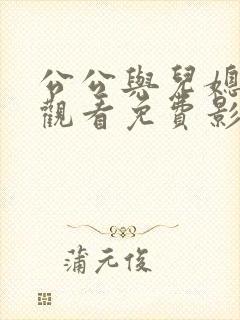 公公與兒媳
觀看免費影
蒲元俊